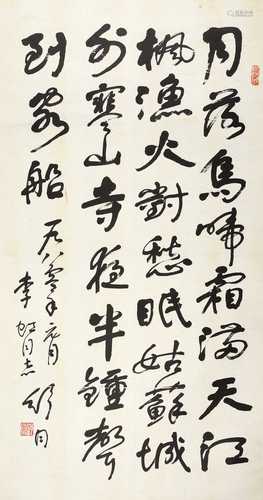 月落烏啼霜滿天江
楓漁火對愁眠姑蘇城
外寒山寺夜半鐘聲
到客船
一九八零年六月
李 同志
舒同